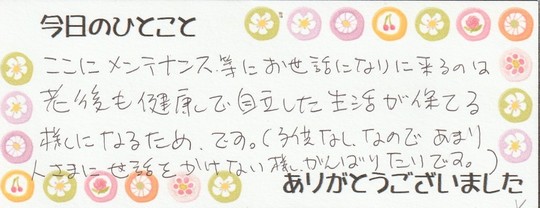 今日のひとこと
ここにメンテナンス等にお世話になりに来るのは
老後も健康で自立した生活が保てる
様になるため、です。(子供なし、なので あまり
人さまに世話をかけない様、がんばりたいです。)
ありがとうございました